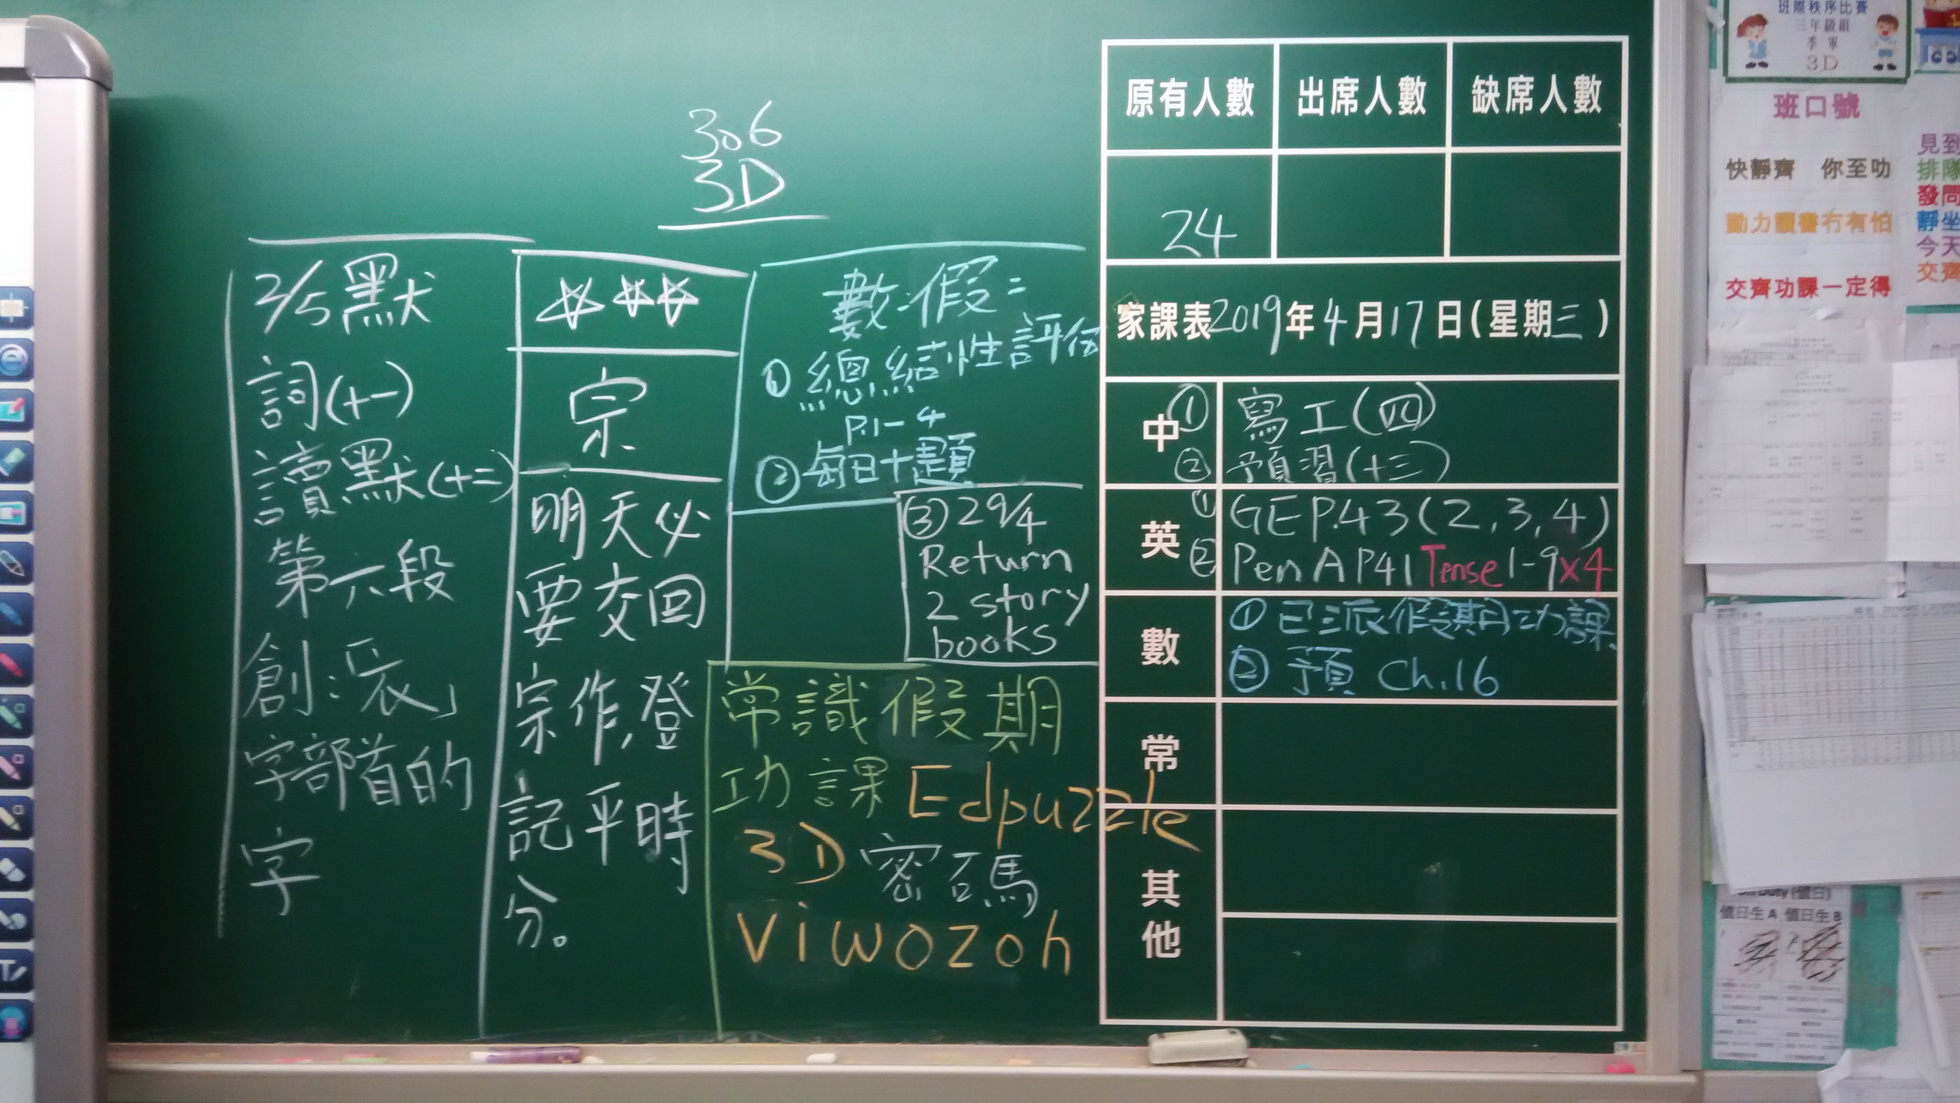 306
3D
2/5 默
詞(十一)
讀默(十二)
第六段
字部首的
字
宗
明天必
要交回
宗作,登
記平時
分。
數:假:
① 總結性評估
P.1-4
② 每日十題
③ 29/4
Return
2 story
books
常識假期
功課 Edpuzzle
3D 密碼
viwozoh
原有人數 出席人數 缺席人數
24
家課表2019年4月17日(星期三)
中 ① 寫工(四)
② 預習(十三)
英 ① GE P.43(2,3,4)
② Pen A P41 Tense 1-9 x4
數 ① 已派假期功課
② 預 Ch.16
常
其他
班際秩序比賽
三年級組
季軍
3D
班口號
快靜齊 你至叻
動力讀書冇有怕
交齊功課一定得
見到
排隊
發問
靜坐
今天
交齊
值日生A 值日生B